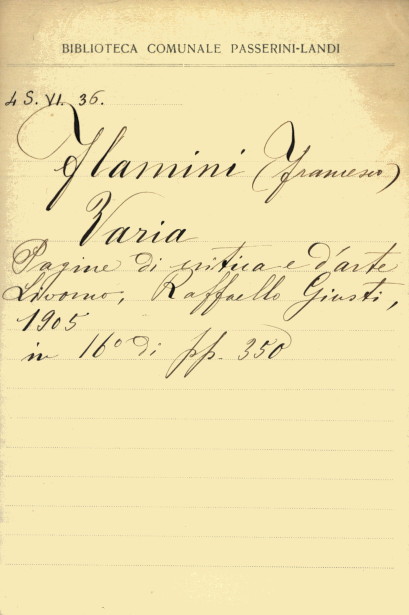 BIBLIOTECA COMUNALE PASSERINI-LANDI
4 S. VI. 36.
Flamini (Francesco)
Varia
Pagine di critica e d'arte
Livorno, Raffaello Giusti,
1905
in 16° di pp. 350